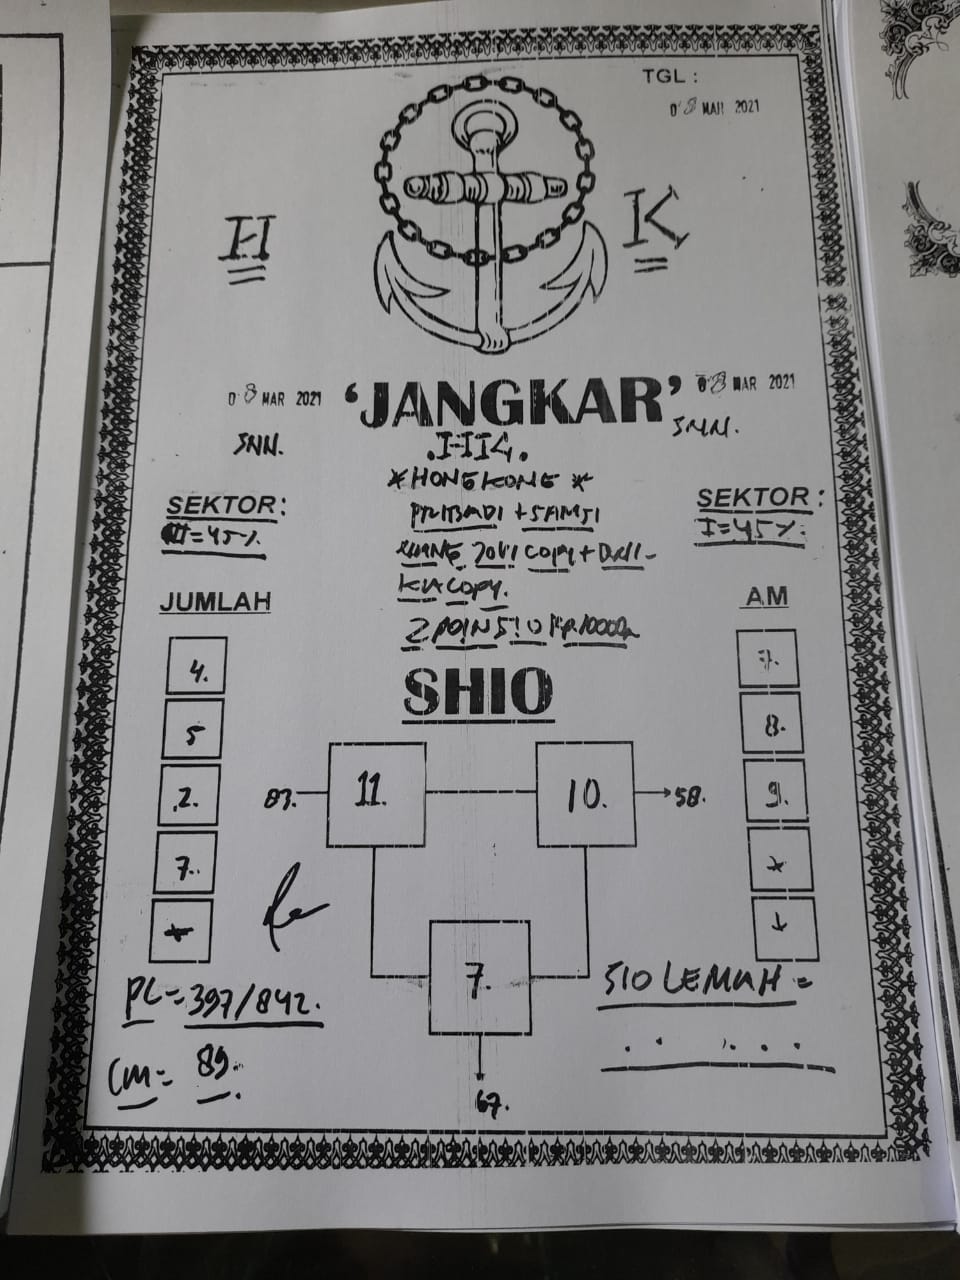 TGL :
08 MAR 2021
H
K
08 MAR 2021
'JANGKAR'
08 MAR 2021
SNN.
SNN.
.HK.
*HONGKONG*
PRIBADI + SAMSI
COPY +
COPY.
SEKTOR:
SEKTOR:
=45%
I=45%
JUMLAH
AM
4.
5
2.
7.
*
7.
8.
9.
*
*
SHIO
83.
11.
10.
58.
7.
67.
PL=397/842.
CM= 89.
SIO LEMAH =